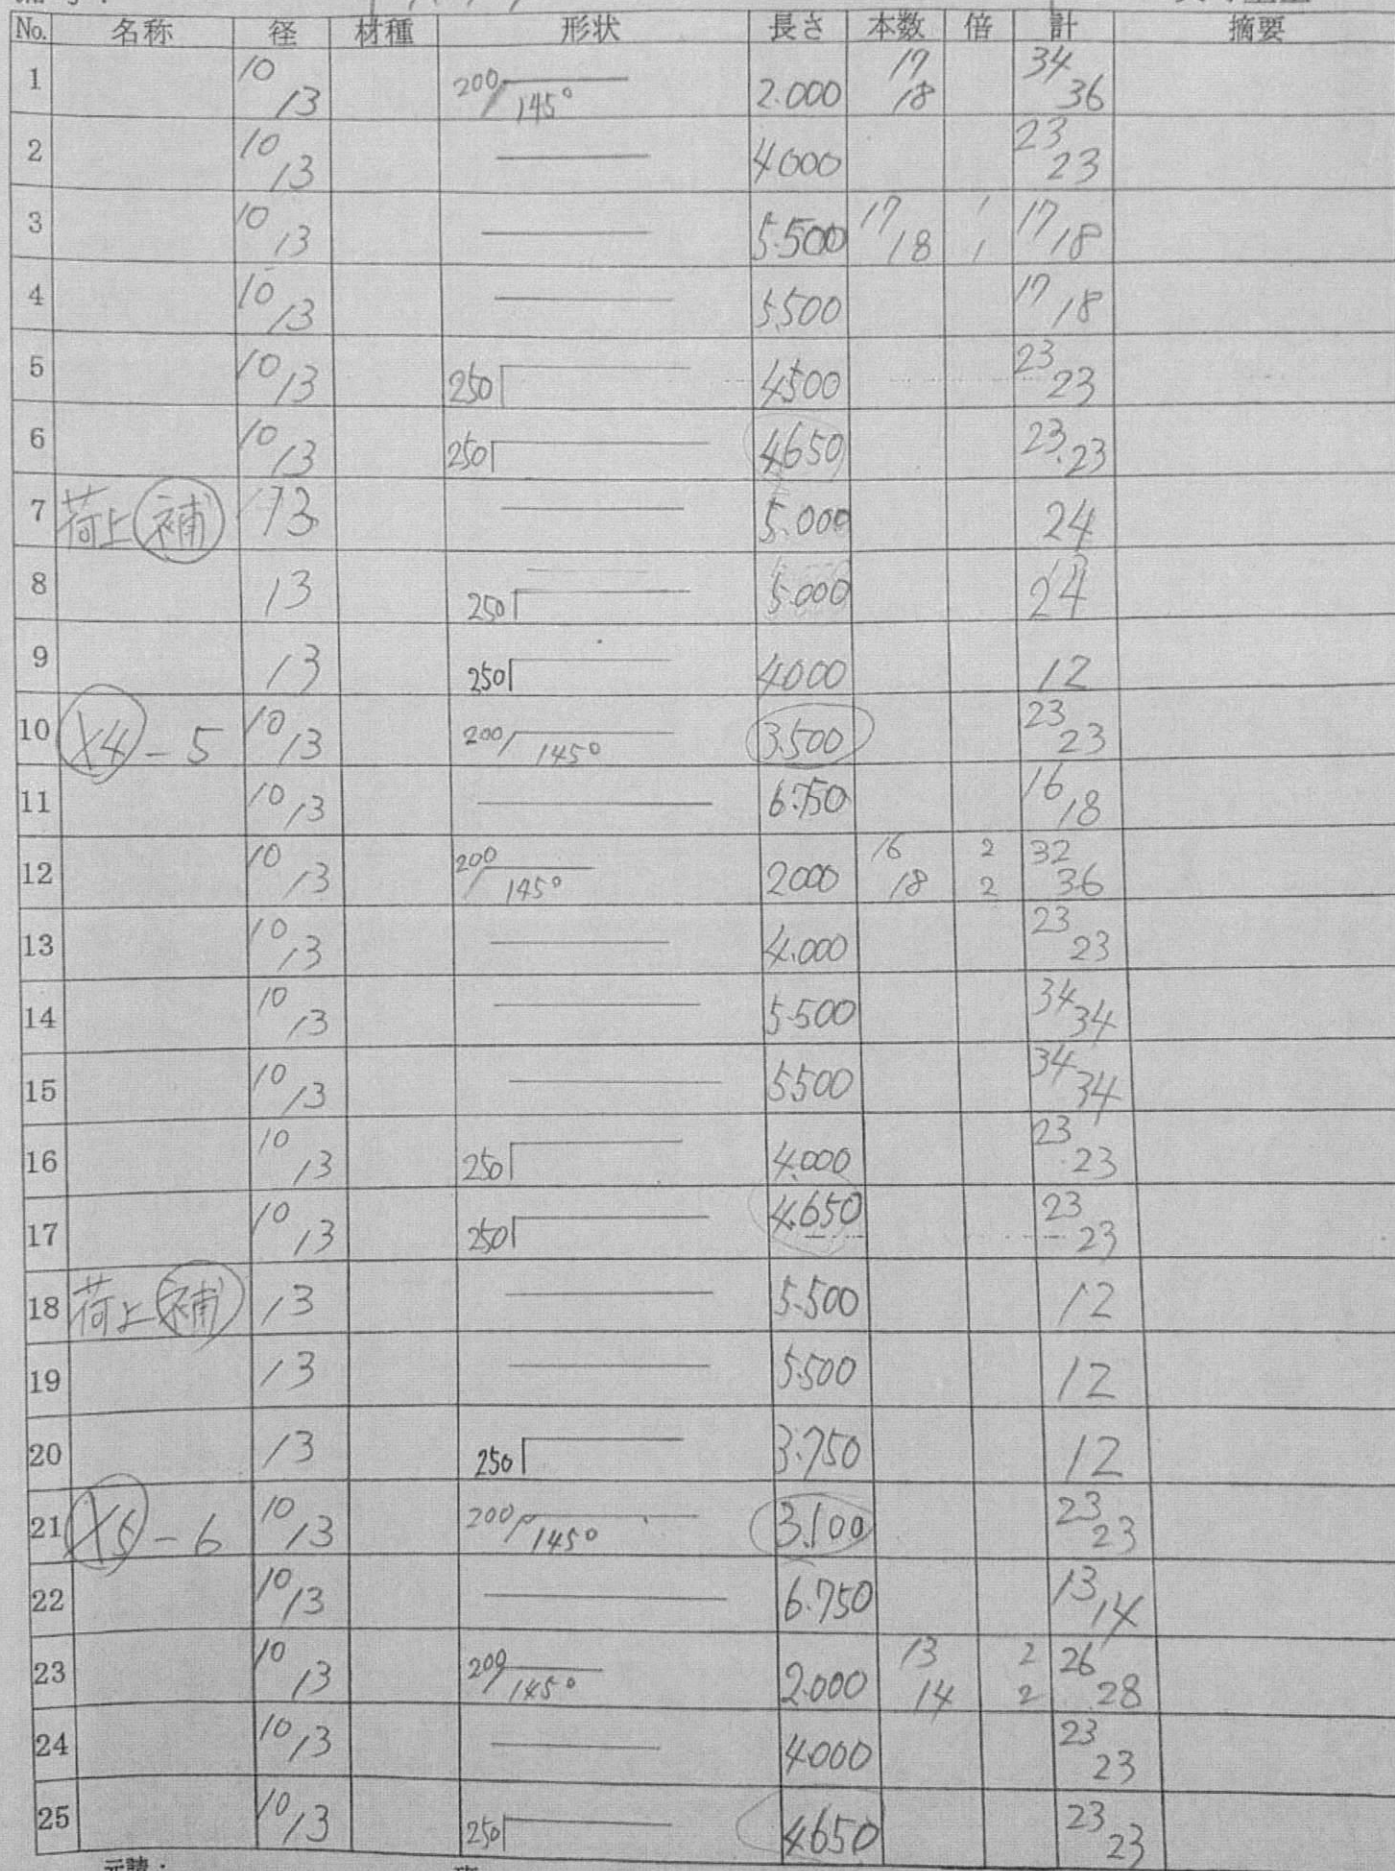 No. 名称 径 材種 形状 長さ 本数 倍 計 摘要
1 10/13 200 145° 2.000 17/18 34/36
2 10/13 4000 23/23
3 10/13 5.500 17/18 1/1 17/18
4 10/13 5.500 17/18
5 10/13 250 4500 23/23
6 10/13 250 4650 23/23
7 荷上 補 13 5.000 24
8 13 250 5.000 24
9 13 250 4000 12
10 X4-5 10/13 200 145° 3.500 23/23
11 10/13 6.750 16/18
12 10/13 200 145° 2000 16/18 2/2 32/36
13 10/13 4.000 23/23
14 10/13 5.500 34/34
15 10/13 5500 34/34
16 10/13 250 4.000 23/23
17 10/13 250 4.650 23/23
18 荷上 補 13 5.500 12
19 13 5.500 12
20 13 250 3.750 12
21 X5-6 10/13 200 145° 3.500 23/23
22 10/13 6.750 13/14
23 10/13 200 145° 2.000 13/14 2/2 26/28
24 10/13 4000 23/23
25 10/13 250 4650 23/23